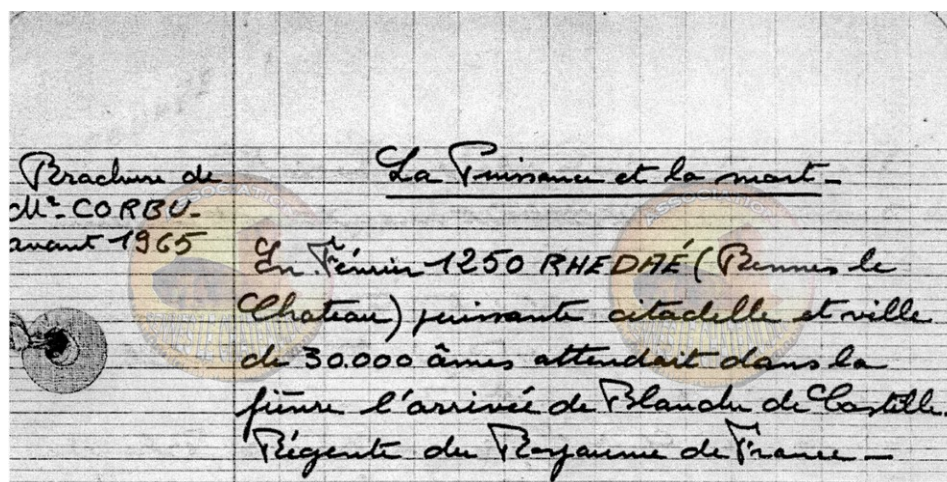 Brochure de
Mr. CORBU-
avant 1965
La Puissance et la mort-
En Février 1250 RHEDAÉ (Rennes le
Chateau) puissante citadelle et ville
de 30.000 âmes attendait dans la
fièvre l'arrivée de Blanche de Castille
Régente du Royaume de France-
ASSOCIATION
ASSOCIATION